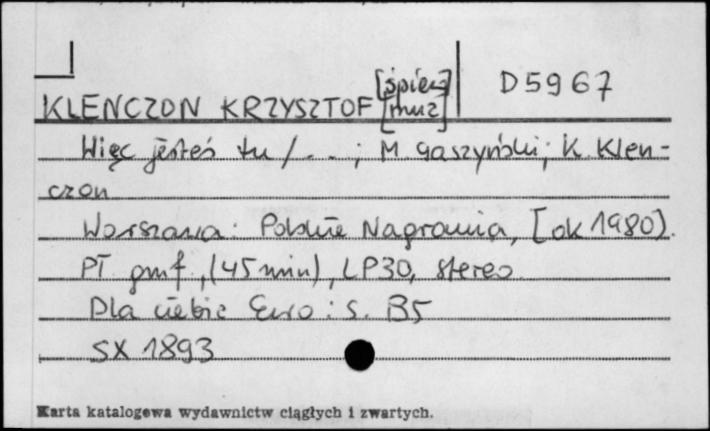 [śpiew] D5967
KLENCZON KRZYSZTOF [muz]
Więc jesteś tu / . . . ; M. Gaszyński; K. Klen-
czon
Warszawa: Polskie Nagrania, [ok 1980].
PŁ gmf., (45 min), LP30, stereo
Dla ciebie Euro: s. B5
SX 1893
Karta katalogowa wydawnictw ciągłych i zwartych.